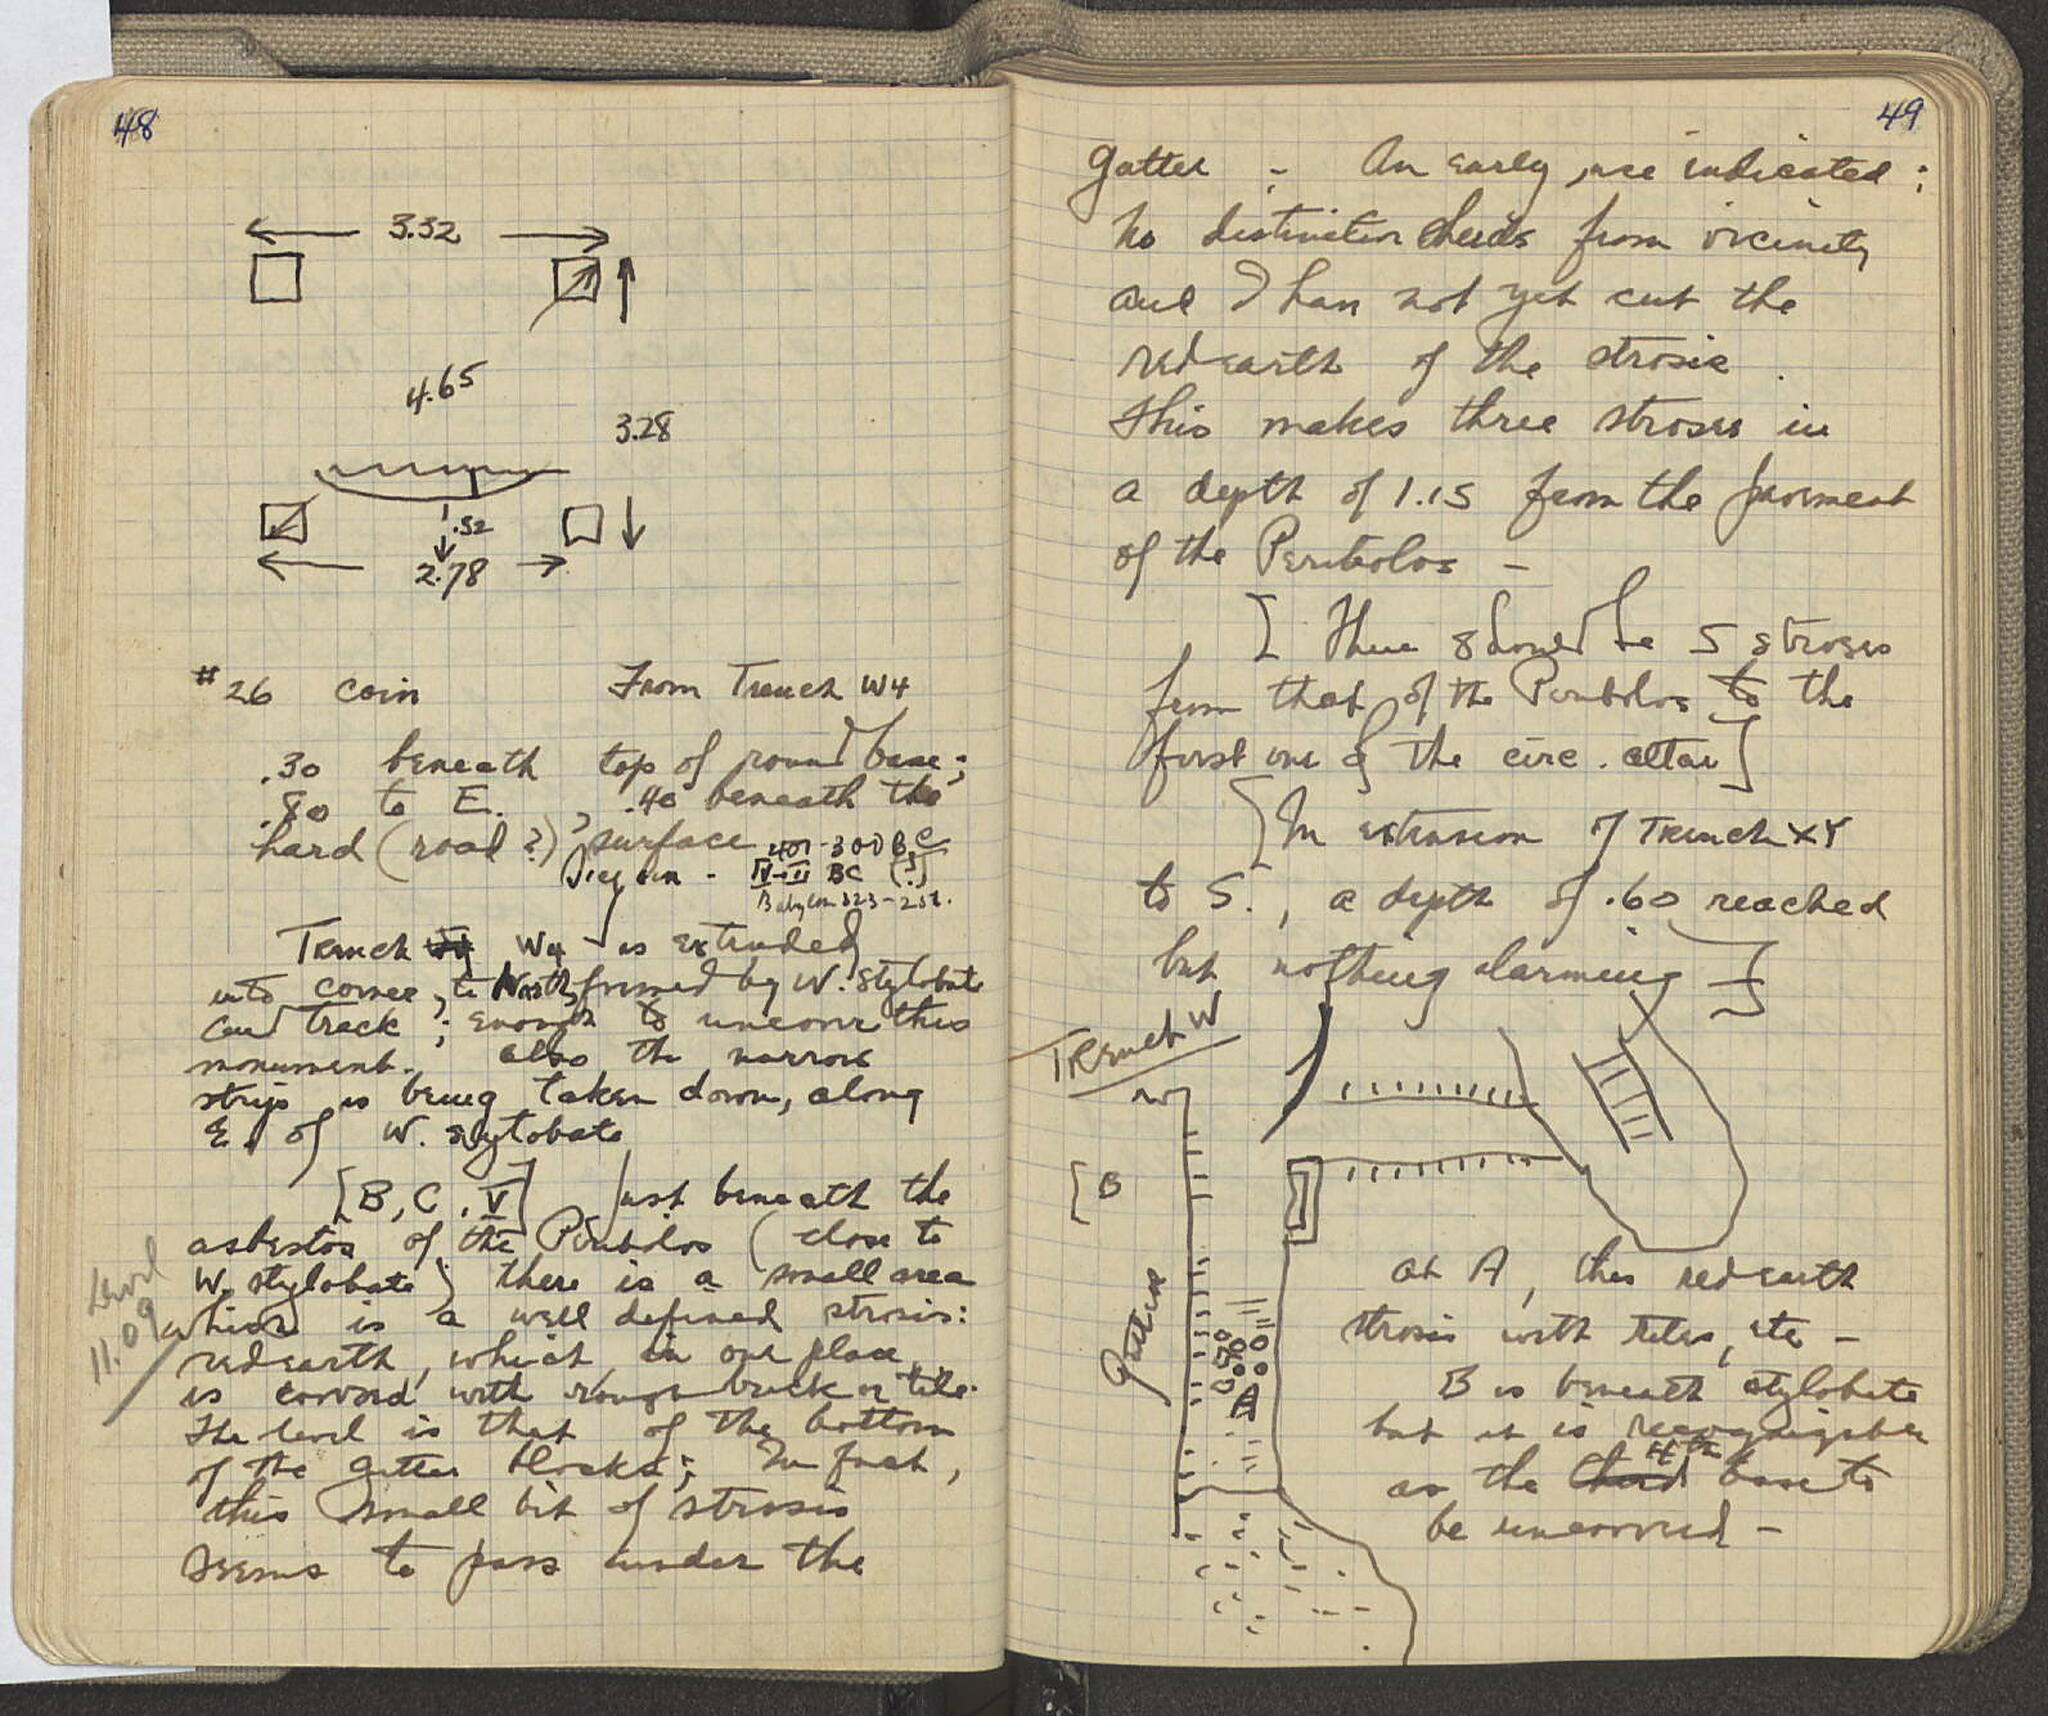 48
3.32
4.65
3.28
.52
2.78
#26 coin From Trench W4
.30 beneath top of round base;
.80 to E., .40 beneath the
hard (road?) surface 401-300 B.C.
Sicyon - IV-II BC (?)
Babylon 323-251.
Trench W4 is extended
into corner, to North, formed by W. stylobate
and track; enough to uncover this
monument. also the narrow
strip is being taken down, along
E. of W. stylobate
[B, C, V] Just beneath the
asbestos of the Peribolos (close to
W. stylobate) there is a small area
which is a well defined strosis:
red earth, which in one place
is covered with rough brick or tile.
The level is that of the bottom
of the gutter blocks; In fact,
this small bit of strosis
seems to pass under the
Level
11.09
49
gutter; An early use indicated;
no distinctive sherds from vicinity
and I have not yet cut the
red earth of the strosis.
This makes three stroses in
a depth of 1.15 from the pavement
of the Peribolos -
[There should be 5 stroses
from that of the Peribolos to the
first one of the circ. altar]
[In extension of Trench XY
to S., a depth of .60 reached
but nothing alarming]
Trench W
N
[B
Gutter
A
at A, this red earth
strosis with tiles, etc -
B is beneath stylobate
but it is recognizable
as the third 4th base to
be uncovered -